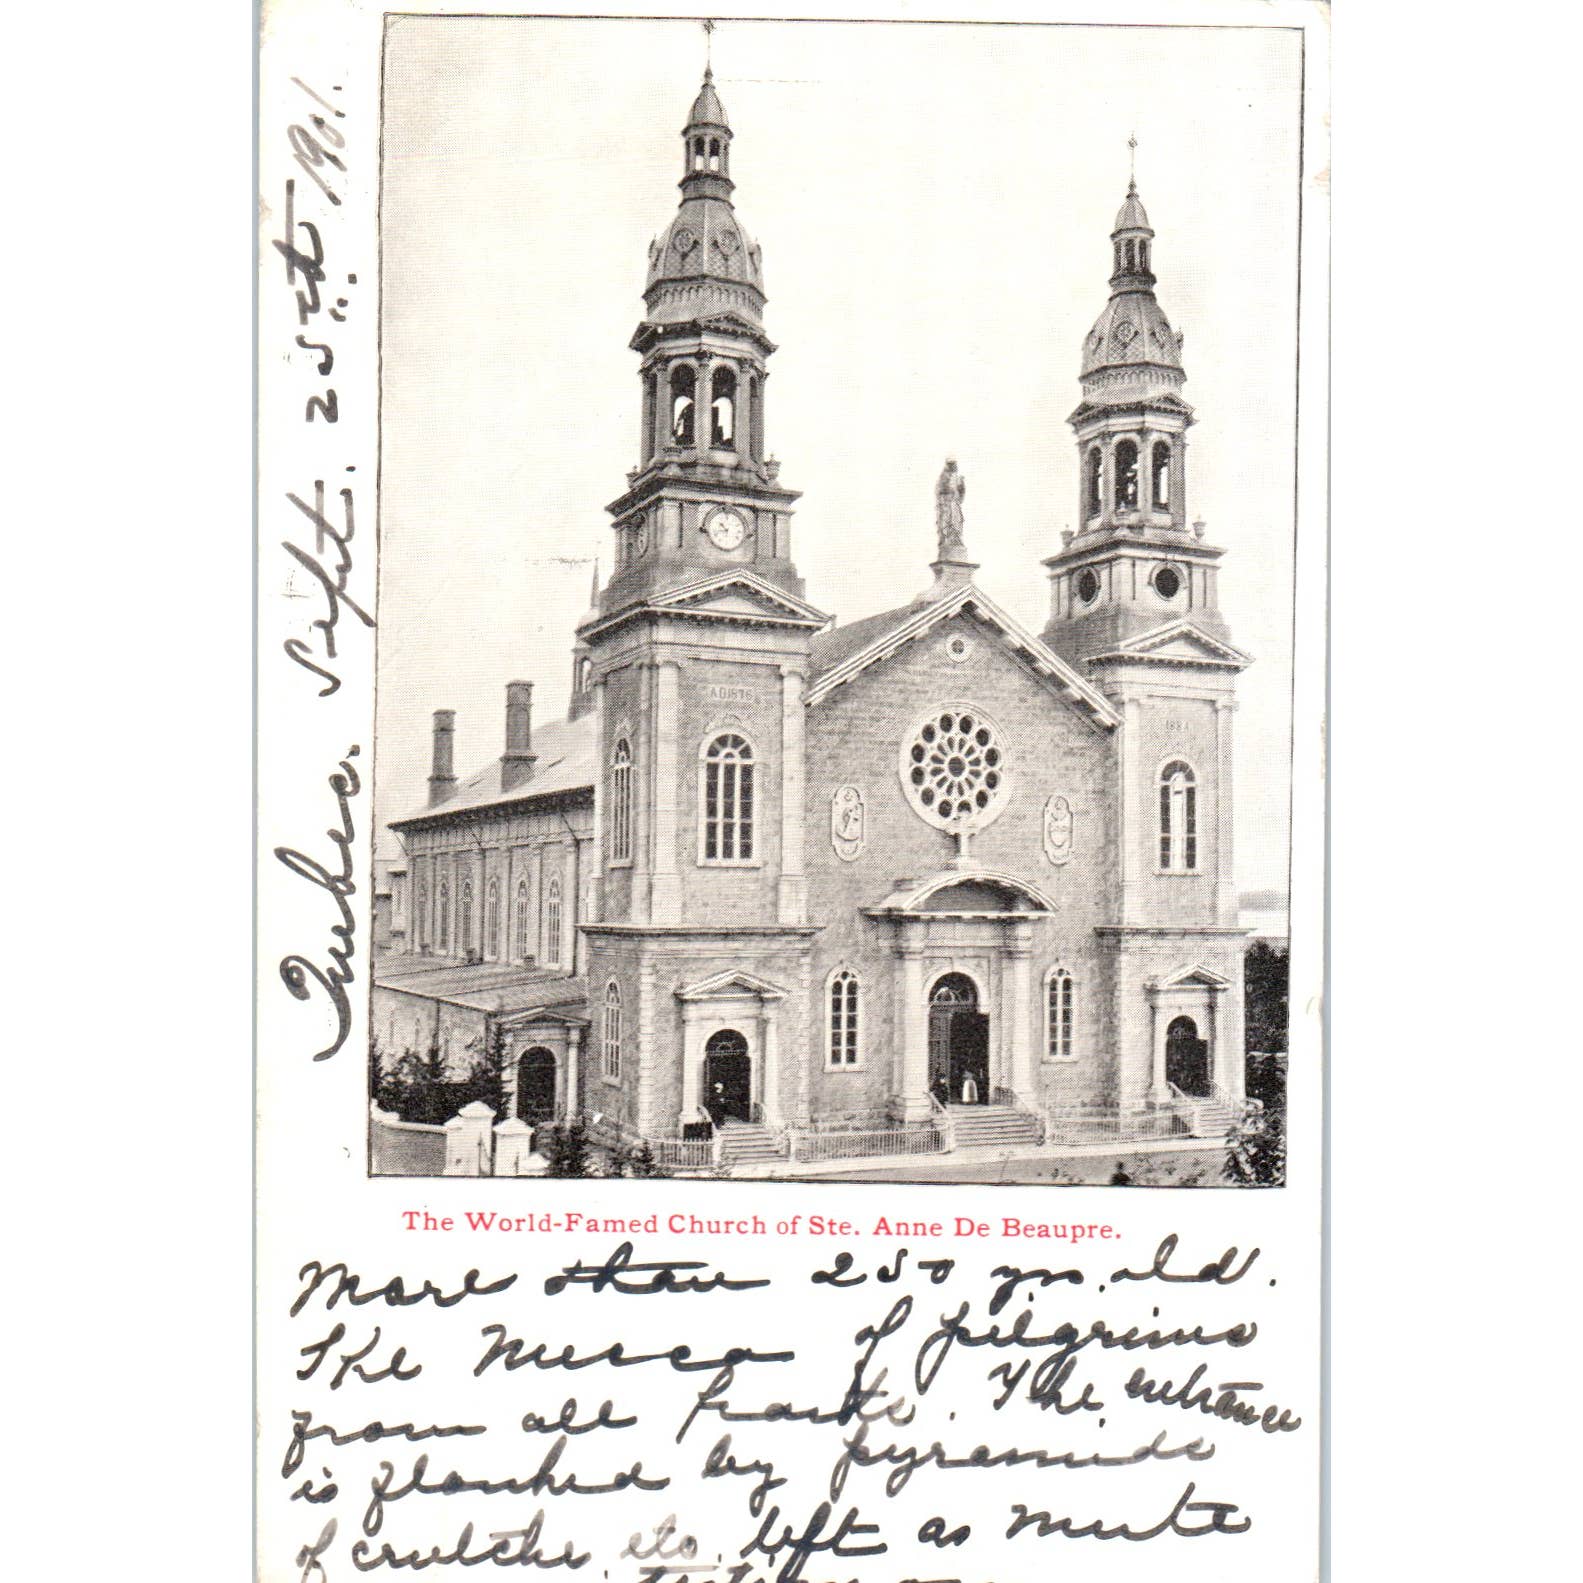 Quebec. Sept. 25th 1901.
A.D.1876
1884
The World-Famed Church of Ste. Anne De Beaupre.
More than 250 yrs. old.
The Mecca of pilgrims
from all parts. The entrance
is flanked by pyramids
of crutches etc. left as mute